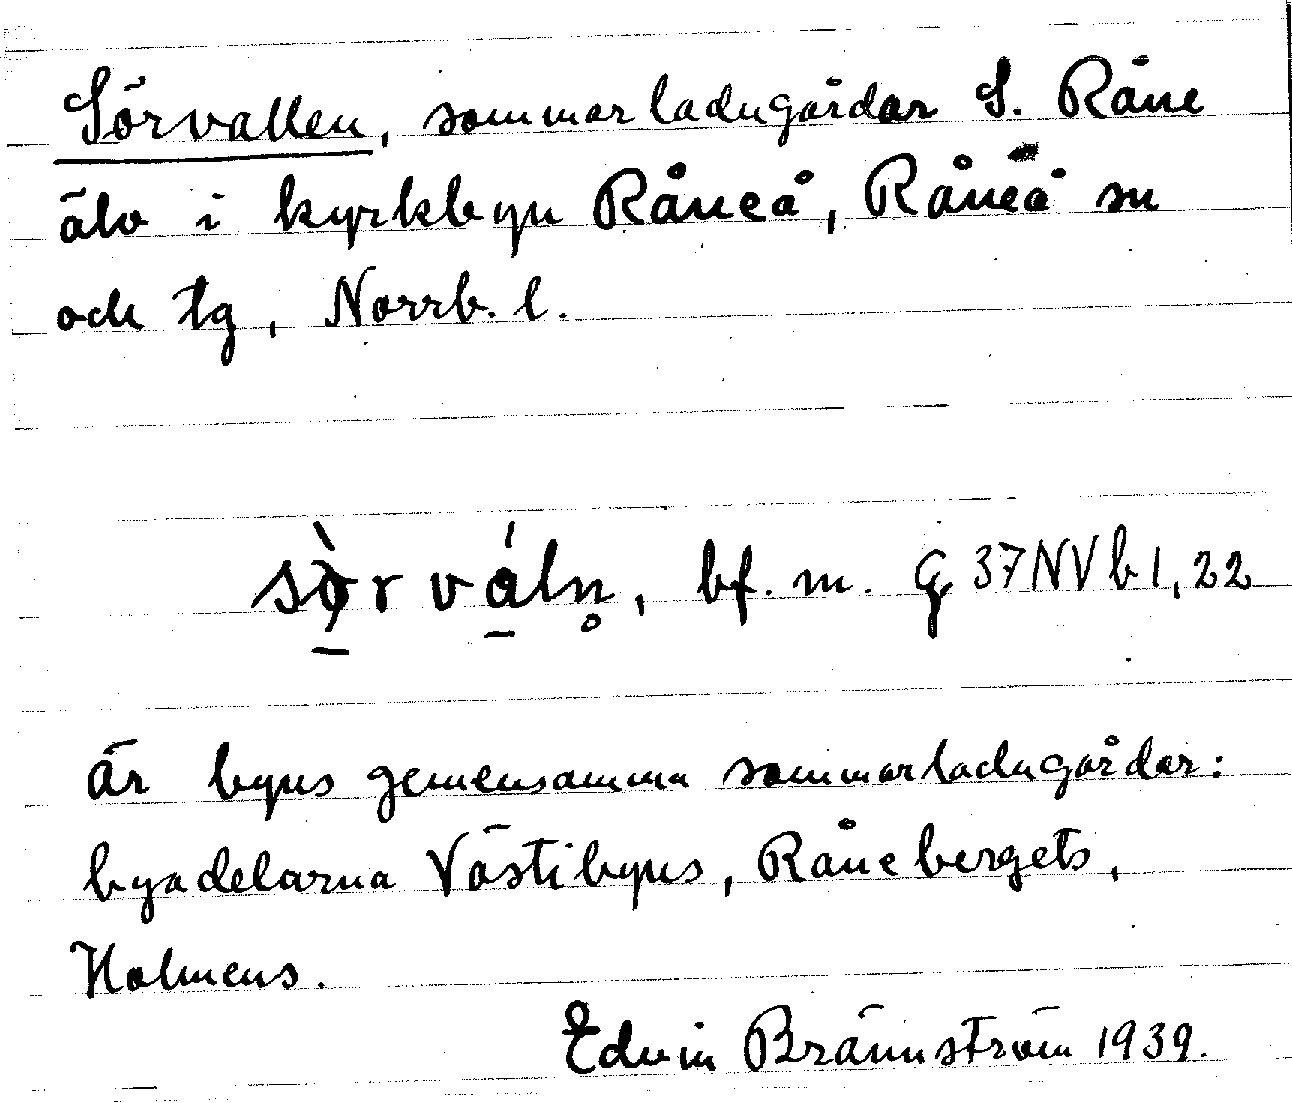 Sörvallen, sommarladugårdar S. Råne
älv i kyrkbyn Råneå, Råneå sn
och tg, Norrb. l.
sə̀r váln̥, bf. m. G 37NVb1,22
Är byns gemensamma sommarladugårdar:
byadelarna Västibyns, Rånebergets,
Holmens.
Edvin Brännström 1939.